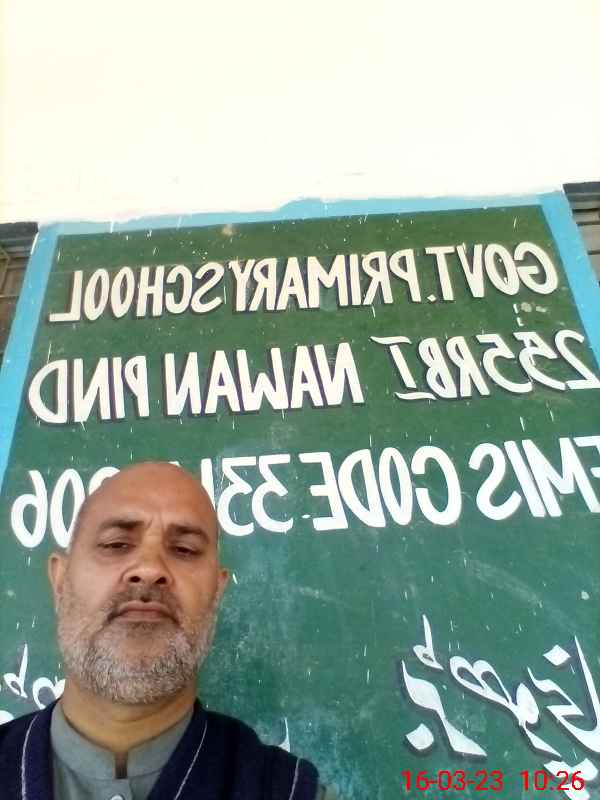 GOVT. PRIMARY SCHOOL
255RB I NAWAN PIND
EMIS CODE.33
06
16-03-23 10:26